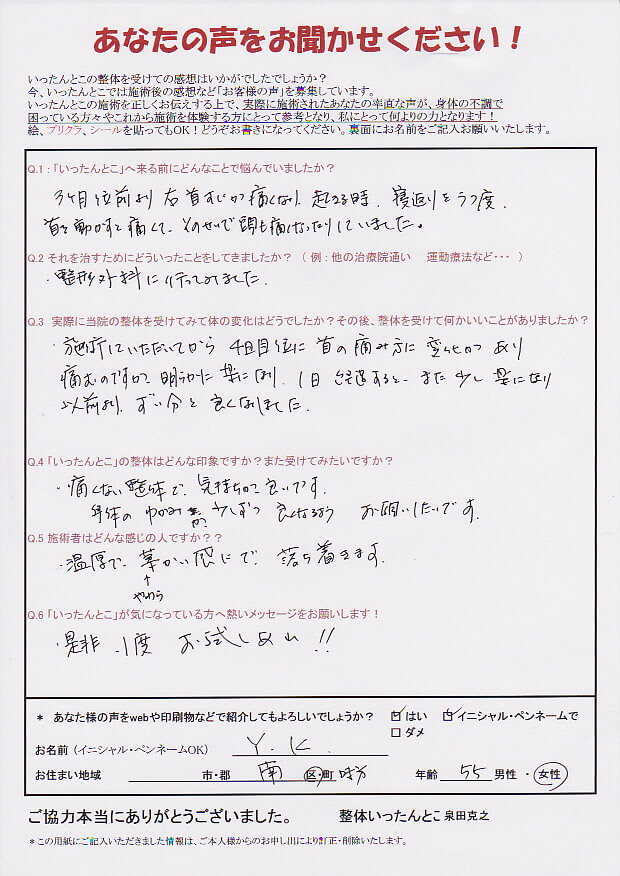 あなたの声をお聞かせください！
いったんとこの整体を受けての感想はいかがでしたでしょうか？
今、いったんとこでは施術後の感想など「お客様の声」を募集しています。
いったんとこの施術を正しくお伝えする上で、実際に施術されたあなたの率直な声が、身体の不調で
困っている方々やこれから施術を体験する方にとって参考となり、私にとって何よりの力となります！
絵、プリクラ、シールを貼ってもOK！どうぞお書きになってください。裏面にお名前をご記入お願いいたします。
Q.1：「いったんとこ」へ来る前にどんなことで悩んでいましたか？
3ヶ月位前より 右首すじが痛くなり 起きる時、寝返りをうつ度、
首を動かすと痛くて、そのせいで頭も痛くなったりしていました。
Q.2 それを治すためにどういったことをしてきましたか？（例：他の治療院通い 運動療法など・・・ ）
・整形外科に行ってみました。
Q.3 実際に当院の整体を受けてみて体の変化はどうでしたか？その後、整体を受けて何かいいことがありましたか？
・施術していただいてから 4回目位に 首の痛み方に 変化が あり
痛むのですが 明らかに 楽になり、1日 経過すると、また 少し 楽になり
以前より、ずい分と 良くなりました。
Q.4 「いったんとこ」の整体はどんな印象ですか？また受けてみたいですか？
・痛くない整体で、気持ちが 良いです。
身体の ゆがみが 少しずつ 良くなるよう お願いしたいです。
Q.5 施術者はどんな感じの人ですか？？
・温厚で、華かい感じで、落ち着きます。
↑
やわら
Q.6 「いったんとこ」が気になっている方へ熱いメッセージをお願いします！
・是非 1度 お試しあれ !!
＊ あなた様の声をwebや印刷物などで紹介してもよろしいでしょうか？ ☑はい ☑イニシャル・ペンネームで
□ダメ
お名前（イニシャル・ペンネームOK） Y.K.
お住まい地域 市・郡 南 区・町 年齢 55 男性 ・ 女性
ご協力本当にありがとうございました。 整体いったんとこ 泉田克之
＊この用紙にご記入いただきました情報は、ご本人様からのお申し出により訂正・削除いたします。